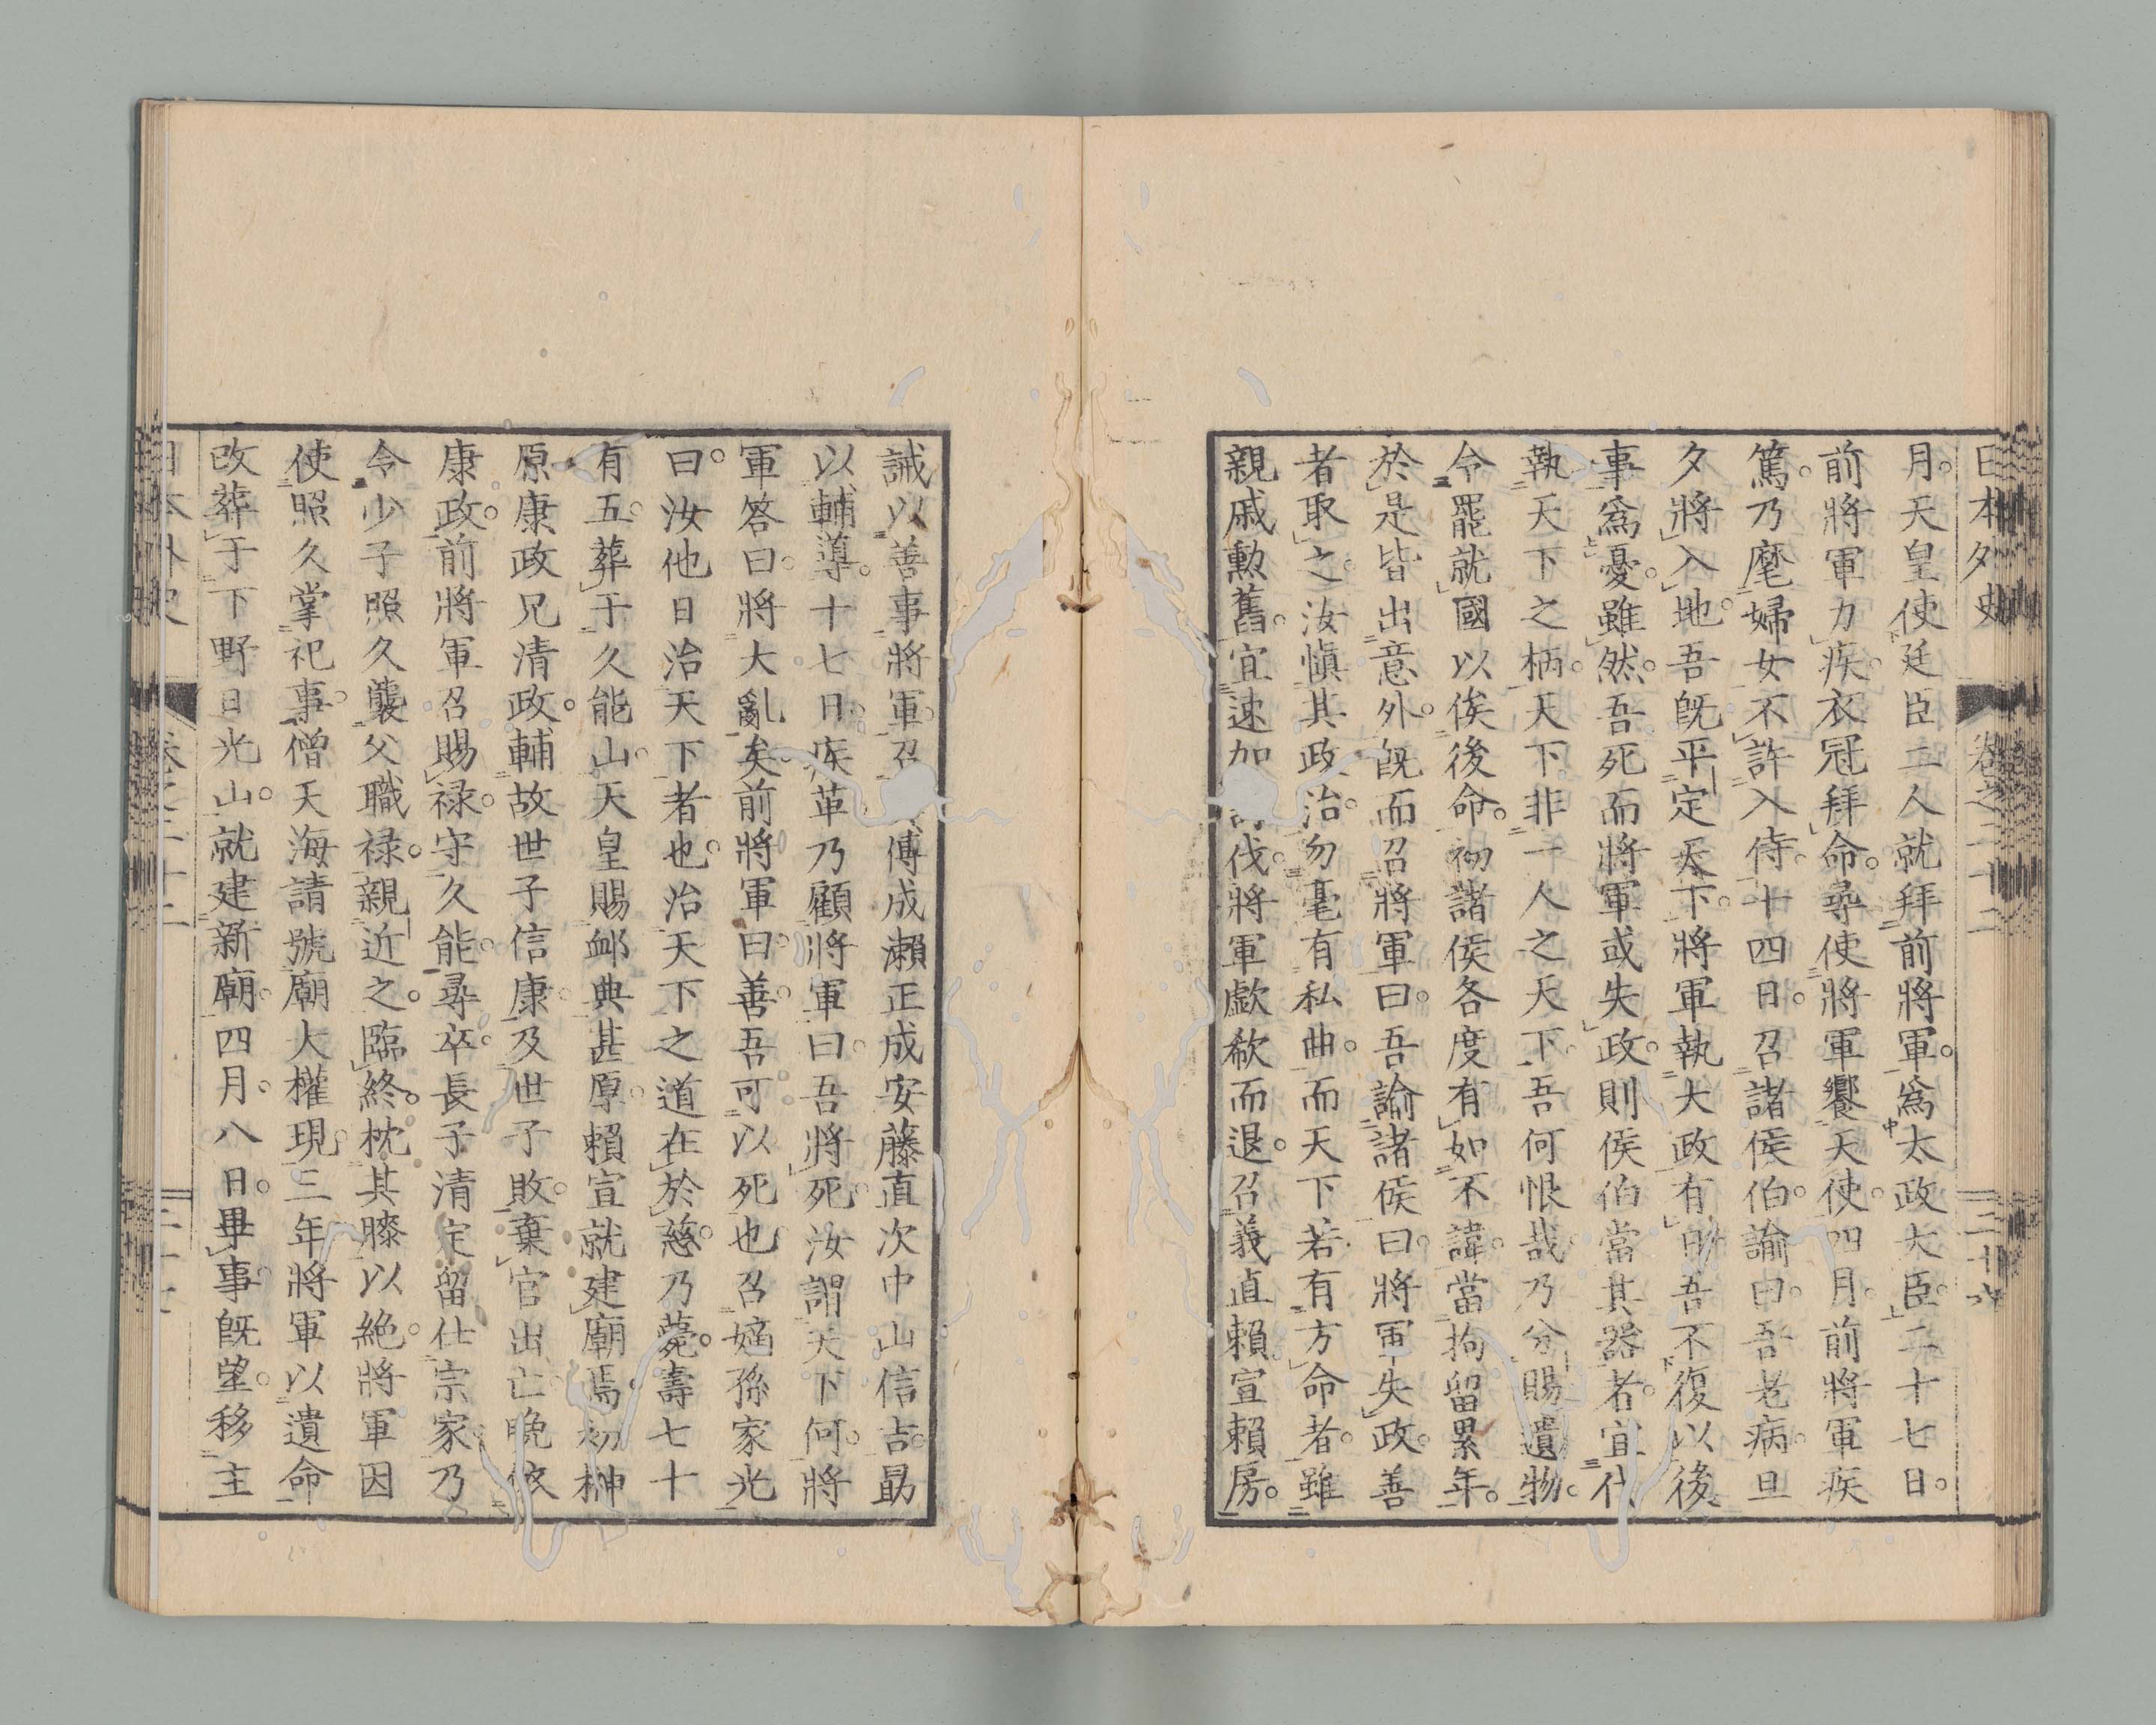 日本外史 卷之二十二 三十六
月。天皇使廷臣二人就拜前將軍。爲太政大臣。二十七日。
前將軍力疾。衣冠拜命。尋使將軍饗天使。四月。前將軍疾
篤。乃麾婦女不許入侍。十四日。召諸侯伯。諭曰。吾老病。旦
夕將入地。吾旣平定天下。將軍執大政有日。吾不復以後
事爲憂。雖然。吾死而將軍或失政。則侯伯當其器者。宜代
執天下之柄。天下非一人之天下。吾何恨哉。乃分賜遺物。
令罷就國以俟後命。初諸侯各度有如不諱。當拘留累年。
於是皆出意外。旣而召將軍曰。吾諭諸侯曰。將軍失政。善
者取之。汝愼其政治。勿毫有私曲。而天下若有方命者。雖
親戚勳舊。宜速加伐。將軍歔欷而退。召義直賴宣賴房。
誡以善事將軍。召傅成瀨正成安藤直次中山信吉。勗
以輔導。十七日。疾革。乃顧將軍曰。吾將死。汝謂天下何。將
軍答曰。將大亂矣。前將軍曰。善。吾可以死也。召嫡孫家光
曰。汝他日治天下者也。治天下之道在於慈。乃薨。壽七十
有五。葬于久能山。天皇賜䘏典甚厚。賴宣就建廟焉。初榊
原康政兄清政。輔故世子信康。及世子敗。棄官出亡。晩依
康政。前將軍召賜祿。守久能。尋卒。長子清定留仕宗家。乃
令少子照久襲父職祿。親近之。臨終。枕其膝以絶。將軍因
使照久掌祀事。僧天海請號廟大權現。三年。將軍以遺命
改葬于下野日光山。就建新廟。四月。八日。畢事。旣望。移主
日本外史 卷之二十二